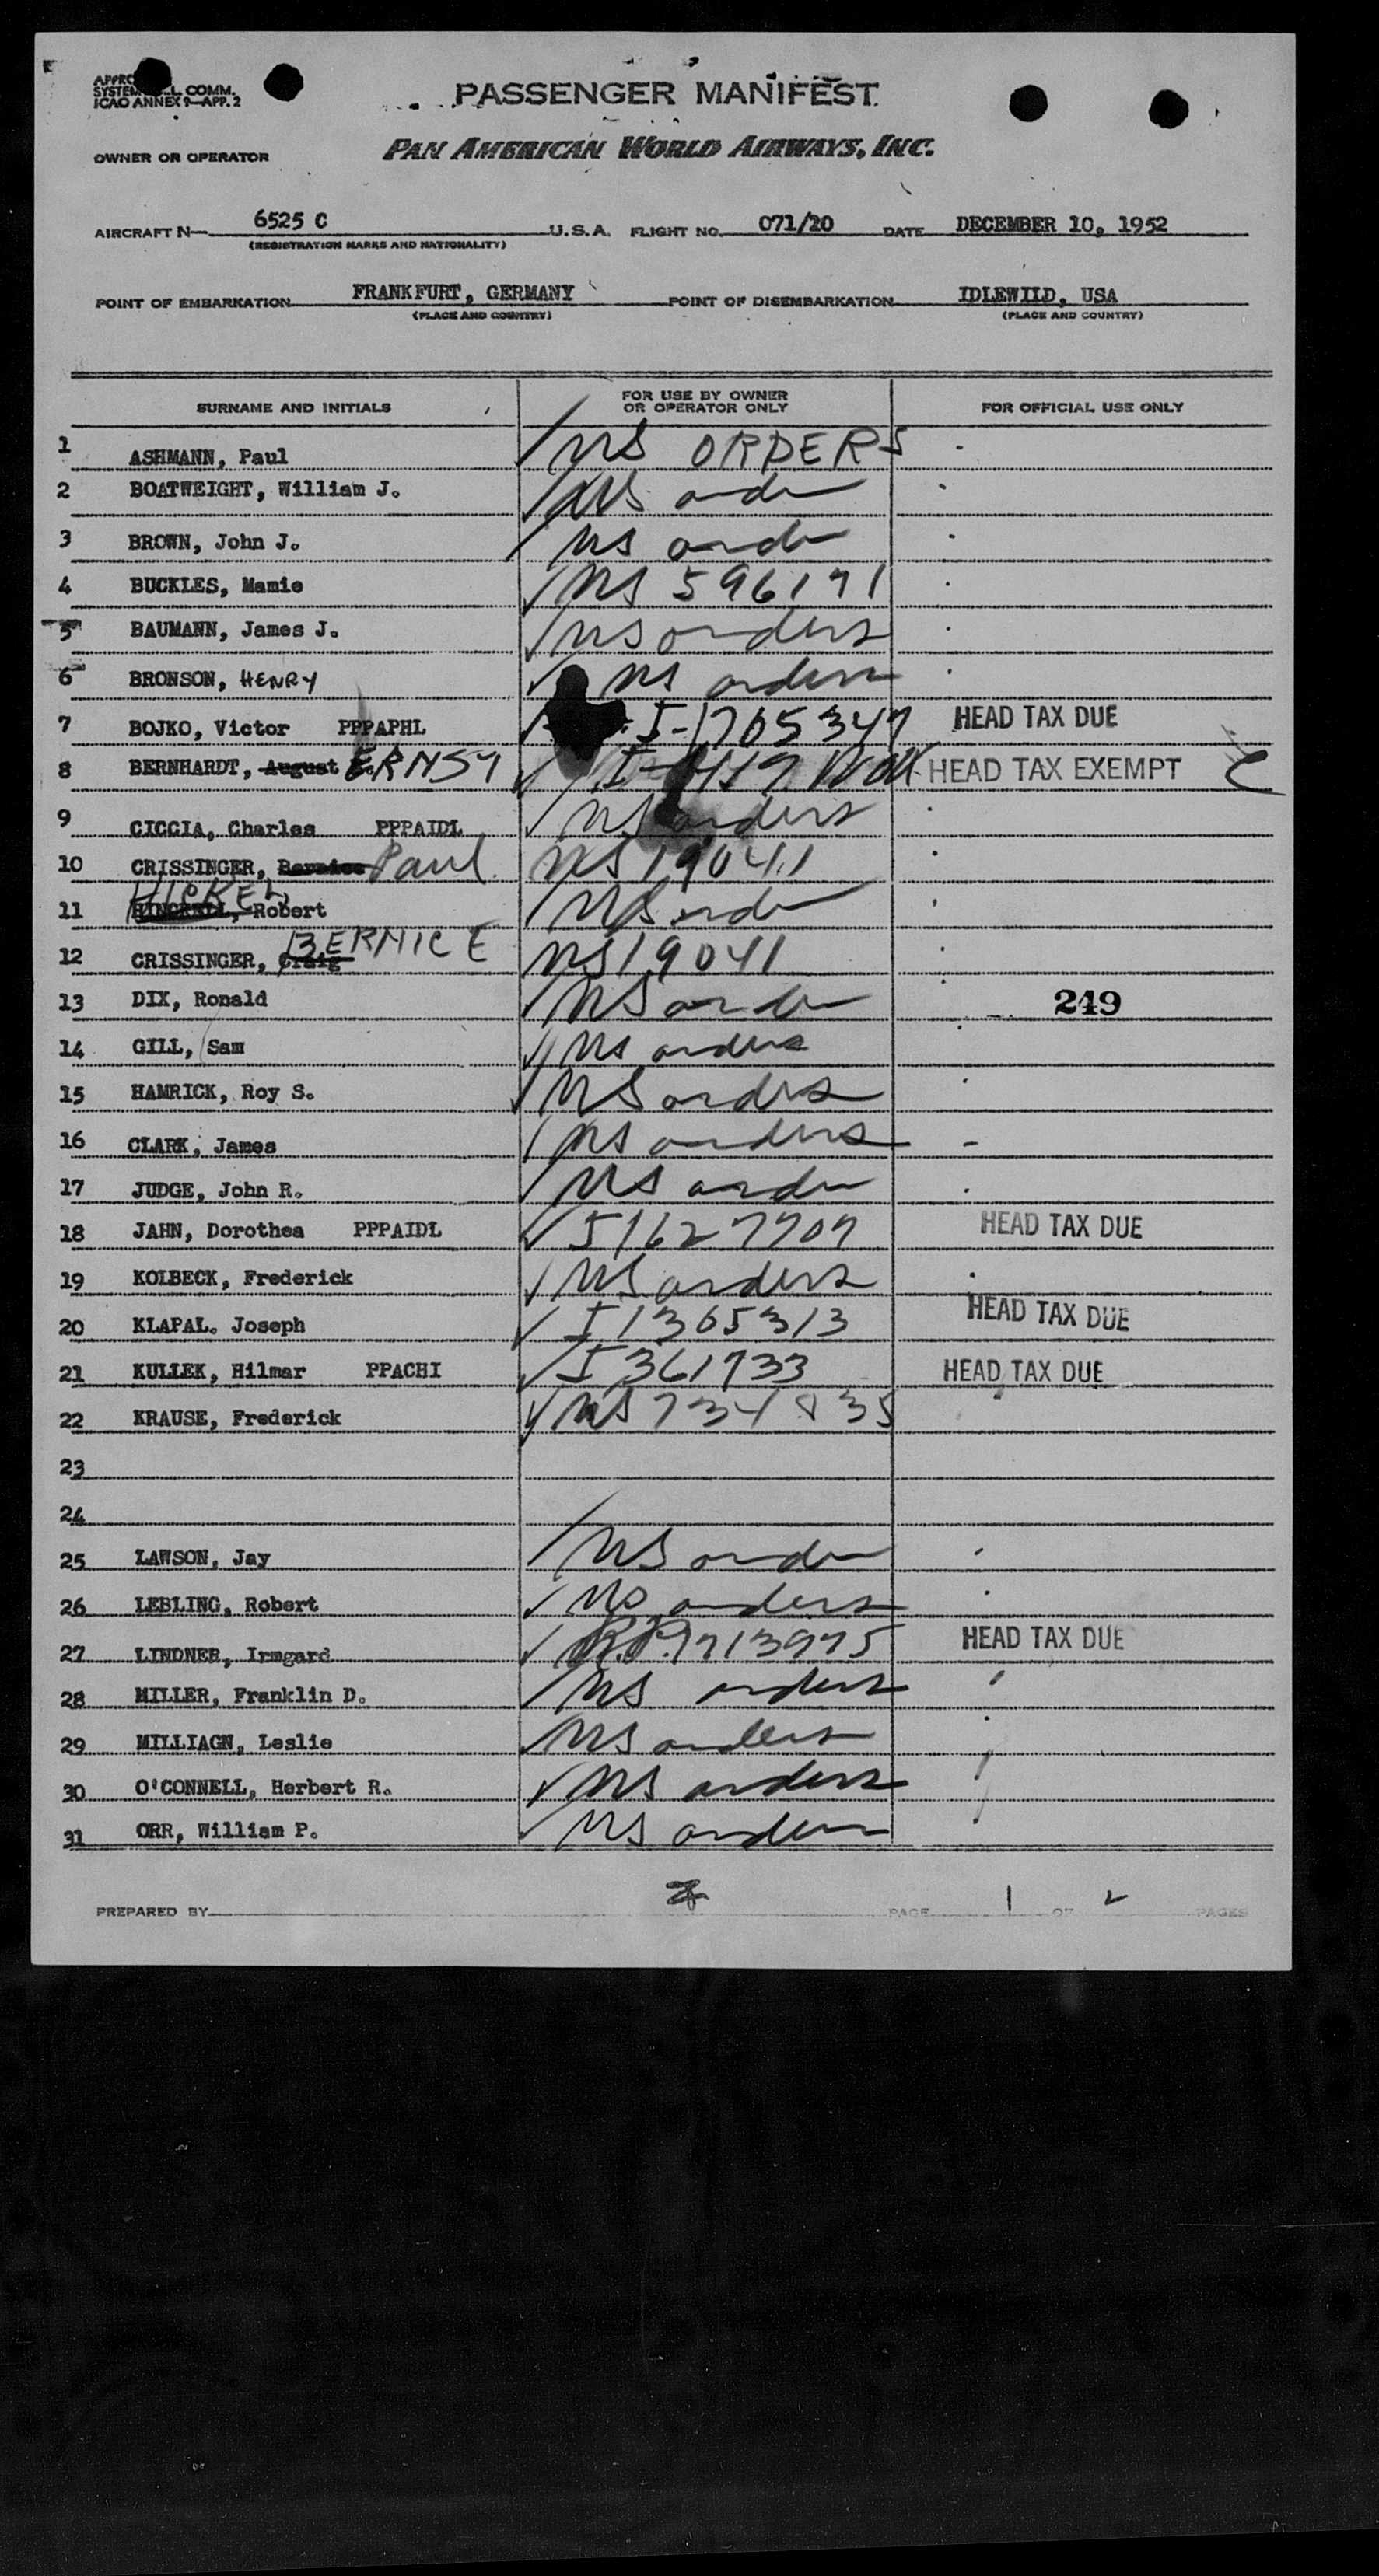 PASSENGER MANIFEST
SYSTEM COMM.
ICAO ANNEX 9—APP. 2
OWNER OR OPERATOR PAN AMERICAN WORLD AIRWAYS, INC.
AIRCRAFT N— 6525 C U.S.A. FLIGHT NO. 071/20 DATE DECEMBER 10, 1952
(REGISTRATION MARKS AND NATIONALITY)
POINT OF EMBARKATION FRANKFURT, GERMANY POINT OF DISEMBARKATION IDLEWILD, USA
(PLACE AND COUNTRY) (PLACE AND COUNTRY)
SURNAME AND INITIALS FOR USE BY OWNER OR OPERATOR ONLY FOR OFFICIAL USE ONLY
1 ASHMANN, Paul US ORDERS
2 BOATWEIGHT, William J. US orders
3 BROWN, John J. US orders
4 BUCKLES, Mamie US 596171
5 BAUMANN, James J. US orders
6 BRONSON, HENRY US orders
7 BOJKO, Victor PPPAPHL I-1765347 HEAD TAX DUE
8 BERNHARDT, August ERNST HEAD TAX EXEMPT
9 CICCIA, Charles PPPAIDL US orders
10 CRISSINGER, Bernice Paul US 19041
11 HICKEL Robert US orders
12 CRISSINGER, Craig BERNICE US 19041
13 DIX, Ronald US orders 249
14 GILL, Sam US orders
15 HAMRICK, Roy S. US orders
16 CLARK, James US orders
17 JUDGE, John R. US orders
18 JAHN, Dorothea PPPAIDL HEAD TAX DUE
19 KOLBECK, Frederick US orders
20 KLAPAL. Joseph I 1365313 HEAD TAX DUE
21 KULLEK, Hilmar PPACHI I 361733 HEAD TAX DUE
22 KRAUSE, Frederick US
23
24
25 LAWSON, Jay US orders
26 LEBLING, Robert US orders
27 LINDNER, Irmgard HEAD TAX DUE
28 MILLER, Franklin D. US orders
29 MILLIAGN, Leslie US orders
30 O'CONNELL, Herbert R. US orders
31 ORR, William P. US orders
PREPARED BY PAGE 1 OF 2 PAGES